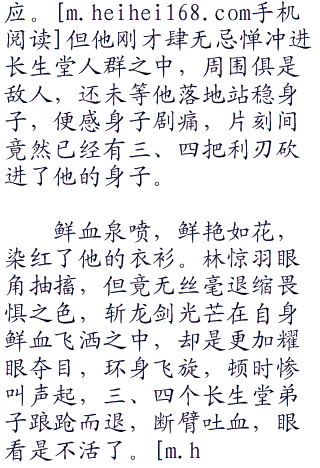 应。[m.heihei168.com手机
阅读]但他刚才肆无忌惮冲进
长生堂人群之中，周围俱是
敌人，还未等他落地站稳身
子，便感身子剧痛，片刻间
竟然已经有三、四把利刃砍
进了他的身子。
鲜血泉喷，鲜艳如花，
染红了他的衣衫。林惊羽眼
角抽搐，但竟无丝毫退缩畏
惧之色，斩龙剑光芒在自身
鲜血飞洒之中，却是更加耀
眼夺目，环身飞旋，顿时惨
叫声起，三、四个长生堂弟
子踉跄而退，断臂吐血，眼
看是不活了。[m.h